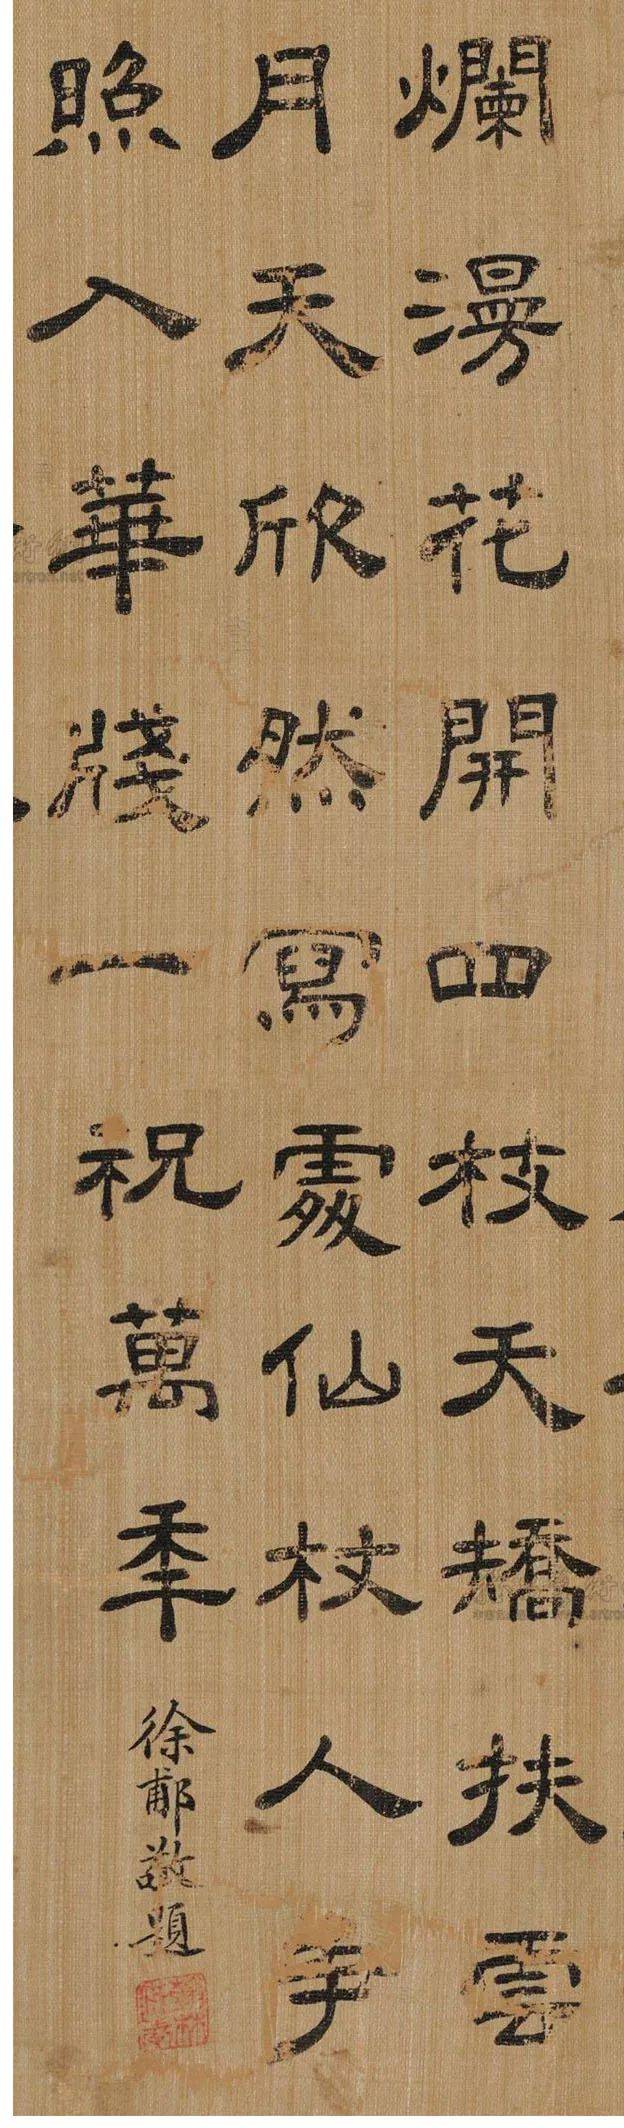 爛漫花開四枝天矯扶雲
月天欣然寫處仙杖人爭
照入華牋一祝萬年
徐郙敬題